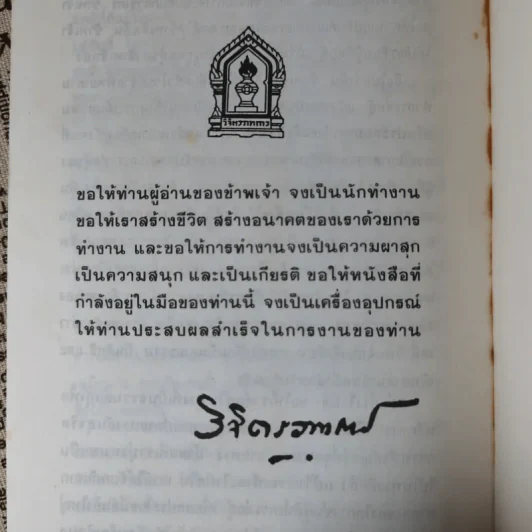 วิจิตรวาทการ
ขอให้ท่านผู้อ่านของข้าพเจ้า จงเป็นนักทำงาน
ขอให้เราสร้างชีวิต สร้างอนาคตของเราด้วยการ
ทำงาน และขอให้การทำงานจงเป็นความผาสุก
เป็นความสนุก และเป็นเกียรติ ขอให้หนังสือที่
กำลังอยู่ในมือของท่านนี้ จงเป็นเครื่องอุปกรณ์
ให้ท่านประสบผลสำเร็จในการงานของท่าน
วิจิตรวาทการ